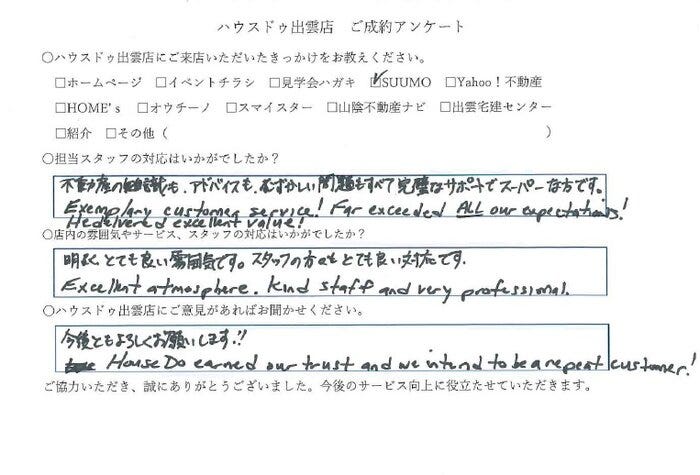 ハウスドゥ出雲店　ご成約アンケート
〇ハウスドゥ出雲店にご来店いただいたきっかけをお教えください。
□ホームページ □イベントチラシ □見学会ハガキ ☑SUUMO □Yahoo！不動産
□HOME's □オウチーノ □スマイスター □山陰不動産ナビ □出雲宅建センター
□紹介 □その他（　　　　　　　　　　）
〇担当スタッフの対応はいかがでしたか？
不動産の知識も、アドバイスも、むずかしい問題もすべて完璧なサポートでスーパーな方です。
Exemplary customer service! Far exceeded ALL our expectations!
He delivered excellent value!
〇店内の雰囲気やサービス、スタッフの対応はいかがでしたか？
明るく、とても良い雰囲気です。スタッフの方々もとても良い対応です。
Excellent atmosphere. Kind staff and very professional.
〇ハウスドゥ出雲店にご意見があればお聞かせください。
今後ともよろしくお願いします!!
House Do earned our trust and we intend to be a repeat customer!
ご協力いただき、誠にありがとうございました。今後のサービス向上に役立たせていただきます。